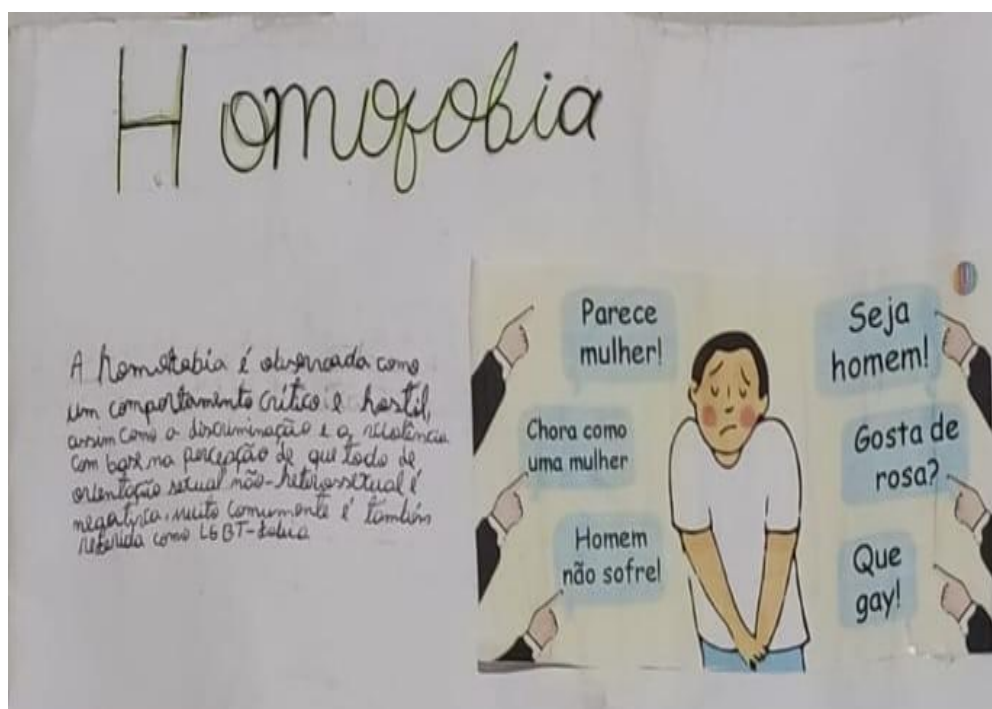 Homofobia
A homofobia é observada como
um comportamento crítico e hostil,
assim como a discriminação e a
com base na percepção de que todo de
orientação sexual não-heterossexual é
negativa. muito comumente é também
referida como LGBT-fobia
Parece
mulher!
Chora como
uma mulher
Homem
não sofre!
Seja
homem!
Gosta de
rosa?
Que
gay!